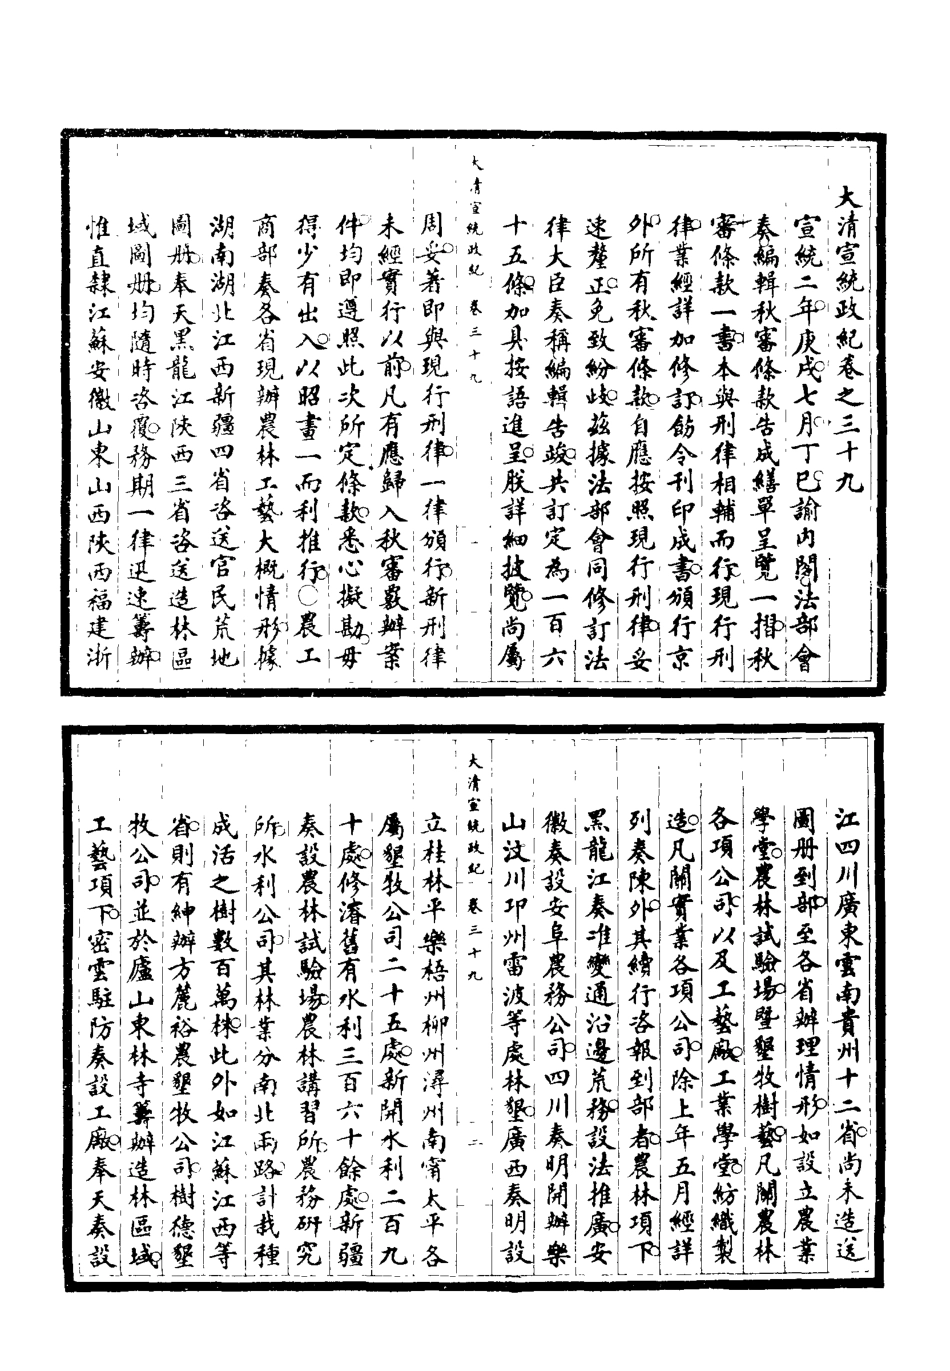 大清宣統政紀卷之三十九
宣統二年庚戌七月丁巳諭內閣法部會
奏編輯秋審條款告成繕單呈覽一摺秋
審條款一書本與刑律相輔而行現行刑
律業經詳加修訂飭令刊印成書頒行京
外所有秋審條款自應按照現行刑律妥
速釐正免致紛歧茲據法部會同修訂法
律大臣奏稱編輯告竣共訂定為一百六
十五條加具按語進呈朕詳細披覽尚屬
大清宣統政紀 卷三十九 一
周妥著即與現行刑律一律頒行新刑律
未經實行以前凡有應歸入秋審覈辦案
件均即遵照此次所定條款悉心擬勘毋
得少有出入以昭畫一而利推行○農工
商部奏各省現辦農林工藝大概情形據
湖南湖北江西新疆四省咨送官民荒地
圖冊奉天黑龍江陝西三省咨送造林區
域圖冊均隨時咨覆務期一律迅速籌辦
惟直隸江蘇安徽山東山西陝西福建浙
江四川廣東雲南貴州十二省尚未造送
圖冊到部至各省辦理情形如設立農業
學堂農林試驗場暨墾牧樹藝凡關農林
各項公司以及工藝廠工業學堂紡織製
造凡關實業各項公司除上年五月經詳
列奏陳外其續行咨報到部者農林項下
黑龍江奏准變通沿邊荒務設法推廣安
徽奏設安阜農務公司四川奏明開辦樂
山汶川卭州雷波等處林墾廣西奏明設
大清宣統政紀 卷三十九 二
立桂林平樂梧州柳州潯州南甯太平各
屬墾牧公司二十五處新開水利二百九
十處修濬舊有水利三百六十餘處新疆
奏設農林試驗場農林講習所農務研究
所水利公司其林業分南北兩路計栽種
成活之樹數百萬株此外如江蘇江西等
省則有紳辦方麓裕農墾牧公司樹德墾
牧公司並於廬山東林寺籌辦造林區域
工藝項下密雲駐防奏設工廠奉天奏設